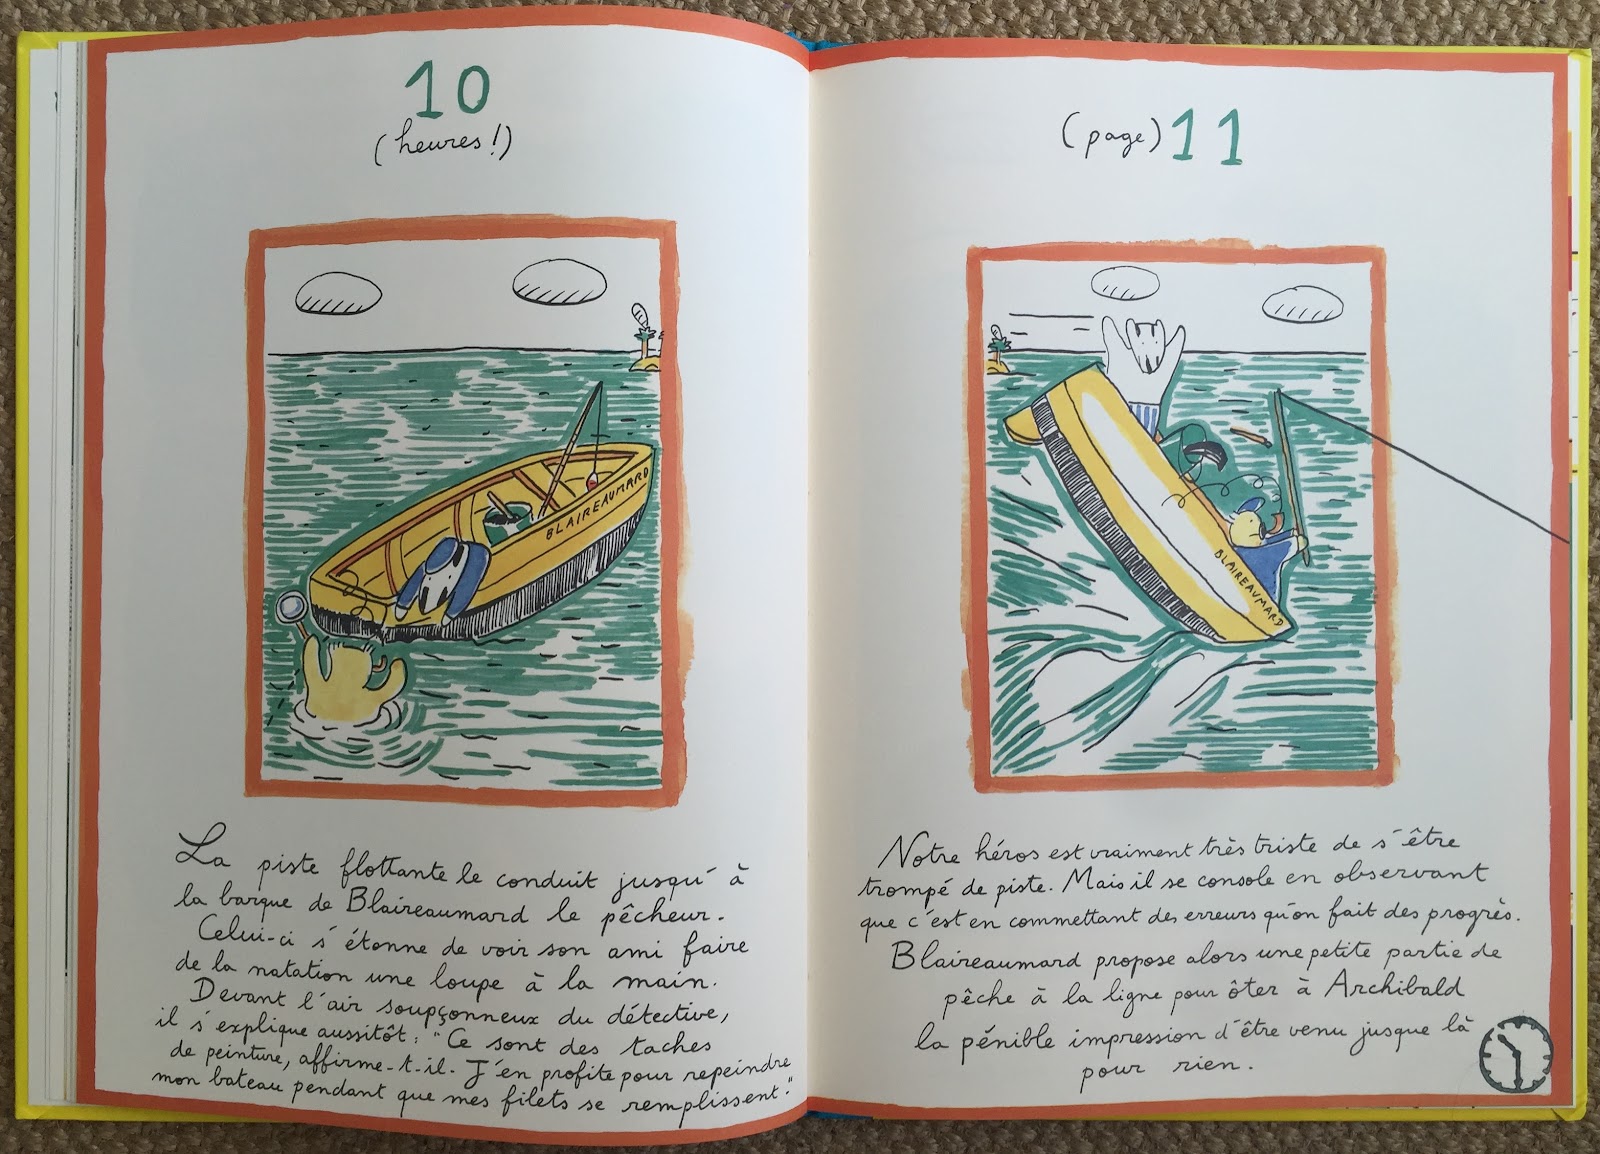 10
(heures!)
BLAIREAUMARD
La piste flottante le conduit jusqu'à
la barque de Blaireaumard le pêcheur.
Celui-ci s'étonne de voir son ami faire
de la natation une loupe à la main.
Devant l'air soupçonneux du détective,
il s'explique aussitôt : "Ce sont des taches
de peinture, affirme-t-il. J'en profite pour repeindre
mon bateau pendant que mes filets se remplissent."
(page) 11
BLAIREAUMARD
Notre héros est vraiment très triste de s'être
trompé de piste. Mais il se console en observant
que c'est en commettant des erreurs qu'on fait des progrès.
Blaireaumard propose alors une petite partie de
pêche à la ligne pour ôter à Archibald
la pénible impression d'être venu jusque là
pour rien.